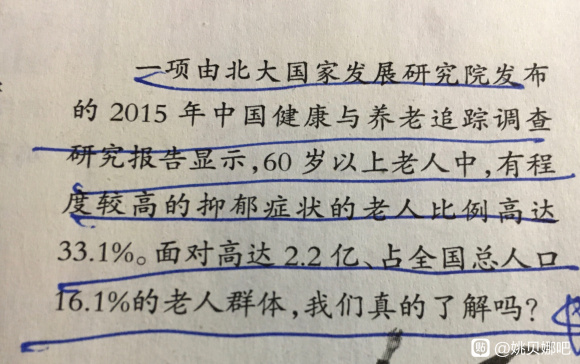 一项由北大国家发展研究院发布
的 2015 年中国健康与养老追踪调查
研究报告显示,60 岁以上老人中,有程
度较高的抑郁症状的老人比例高达
33.1%。面对高达 2.2 亿、占全国总人口
16.1%的老人群体,我们真的了解吗?
@姚贝娜吧